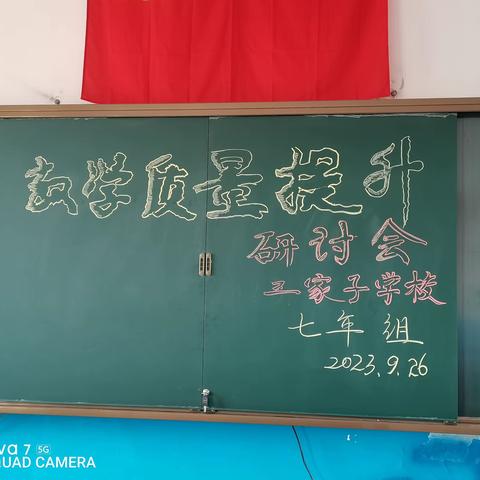 教学质量提升
研讨会
三家子学校
七年组
2023.9.26
va 7 5G
QUAD CAMERA